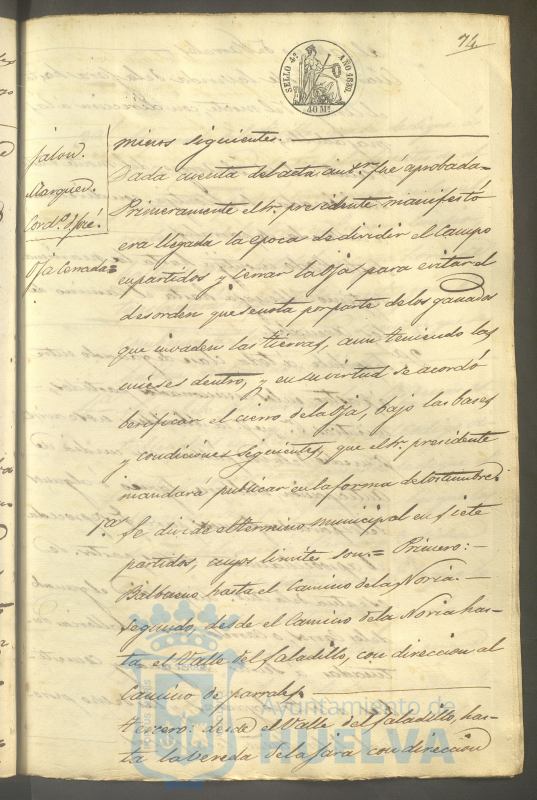 74
SELLO 4º AÑO 1883
40 Ms
Jalon.
Marquez.
Cord.ª José.
Oja Cerrada =
mieros siguientes.
Dada cuenta del acta ant.or fué aprobada =
Primeramente el Sr. presidente manifestó
era llegada la epoca de dividir el Campo
en partidos y cerrar la Oja para evitar el
desorden que se nota por parte de los ganados
que invaden las tierras, aun teniendo las
mieses dentro, y en su virtud se acordó
berificar el cierro de la Oja, bajo las bases
y condiciones siguientes, que el Sr. presidente
mandará publicar en la forma de costumbre.
1ª Se divide el termino municipal en siete
partidos, cuyos limites son = Primero: -
Balbueno hasta el Camino de la Noria. -
Segundo, desde el Camino de la Noria has-
ta el Valle del Saladillo, con direccion al
Camino de parrales.
tercero: desde el Valle del Saladillo, has-
ta la Vereda de la Jara con direccion
Ayuntamiento de
HUELVA